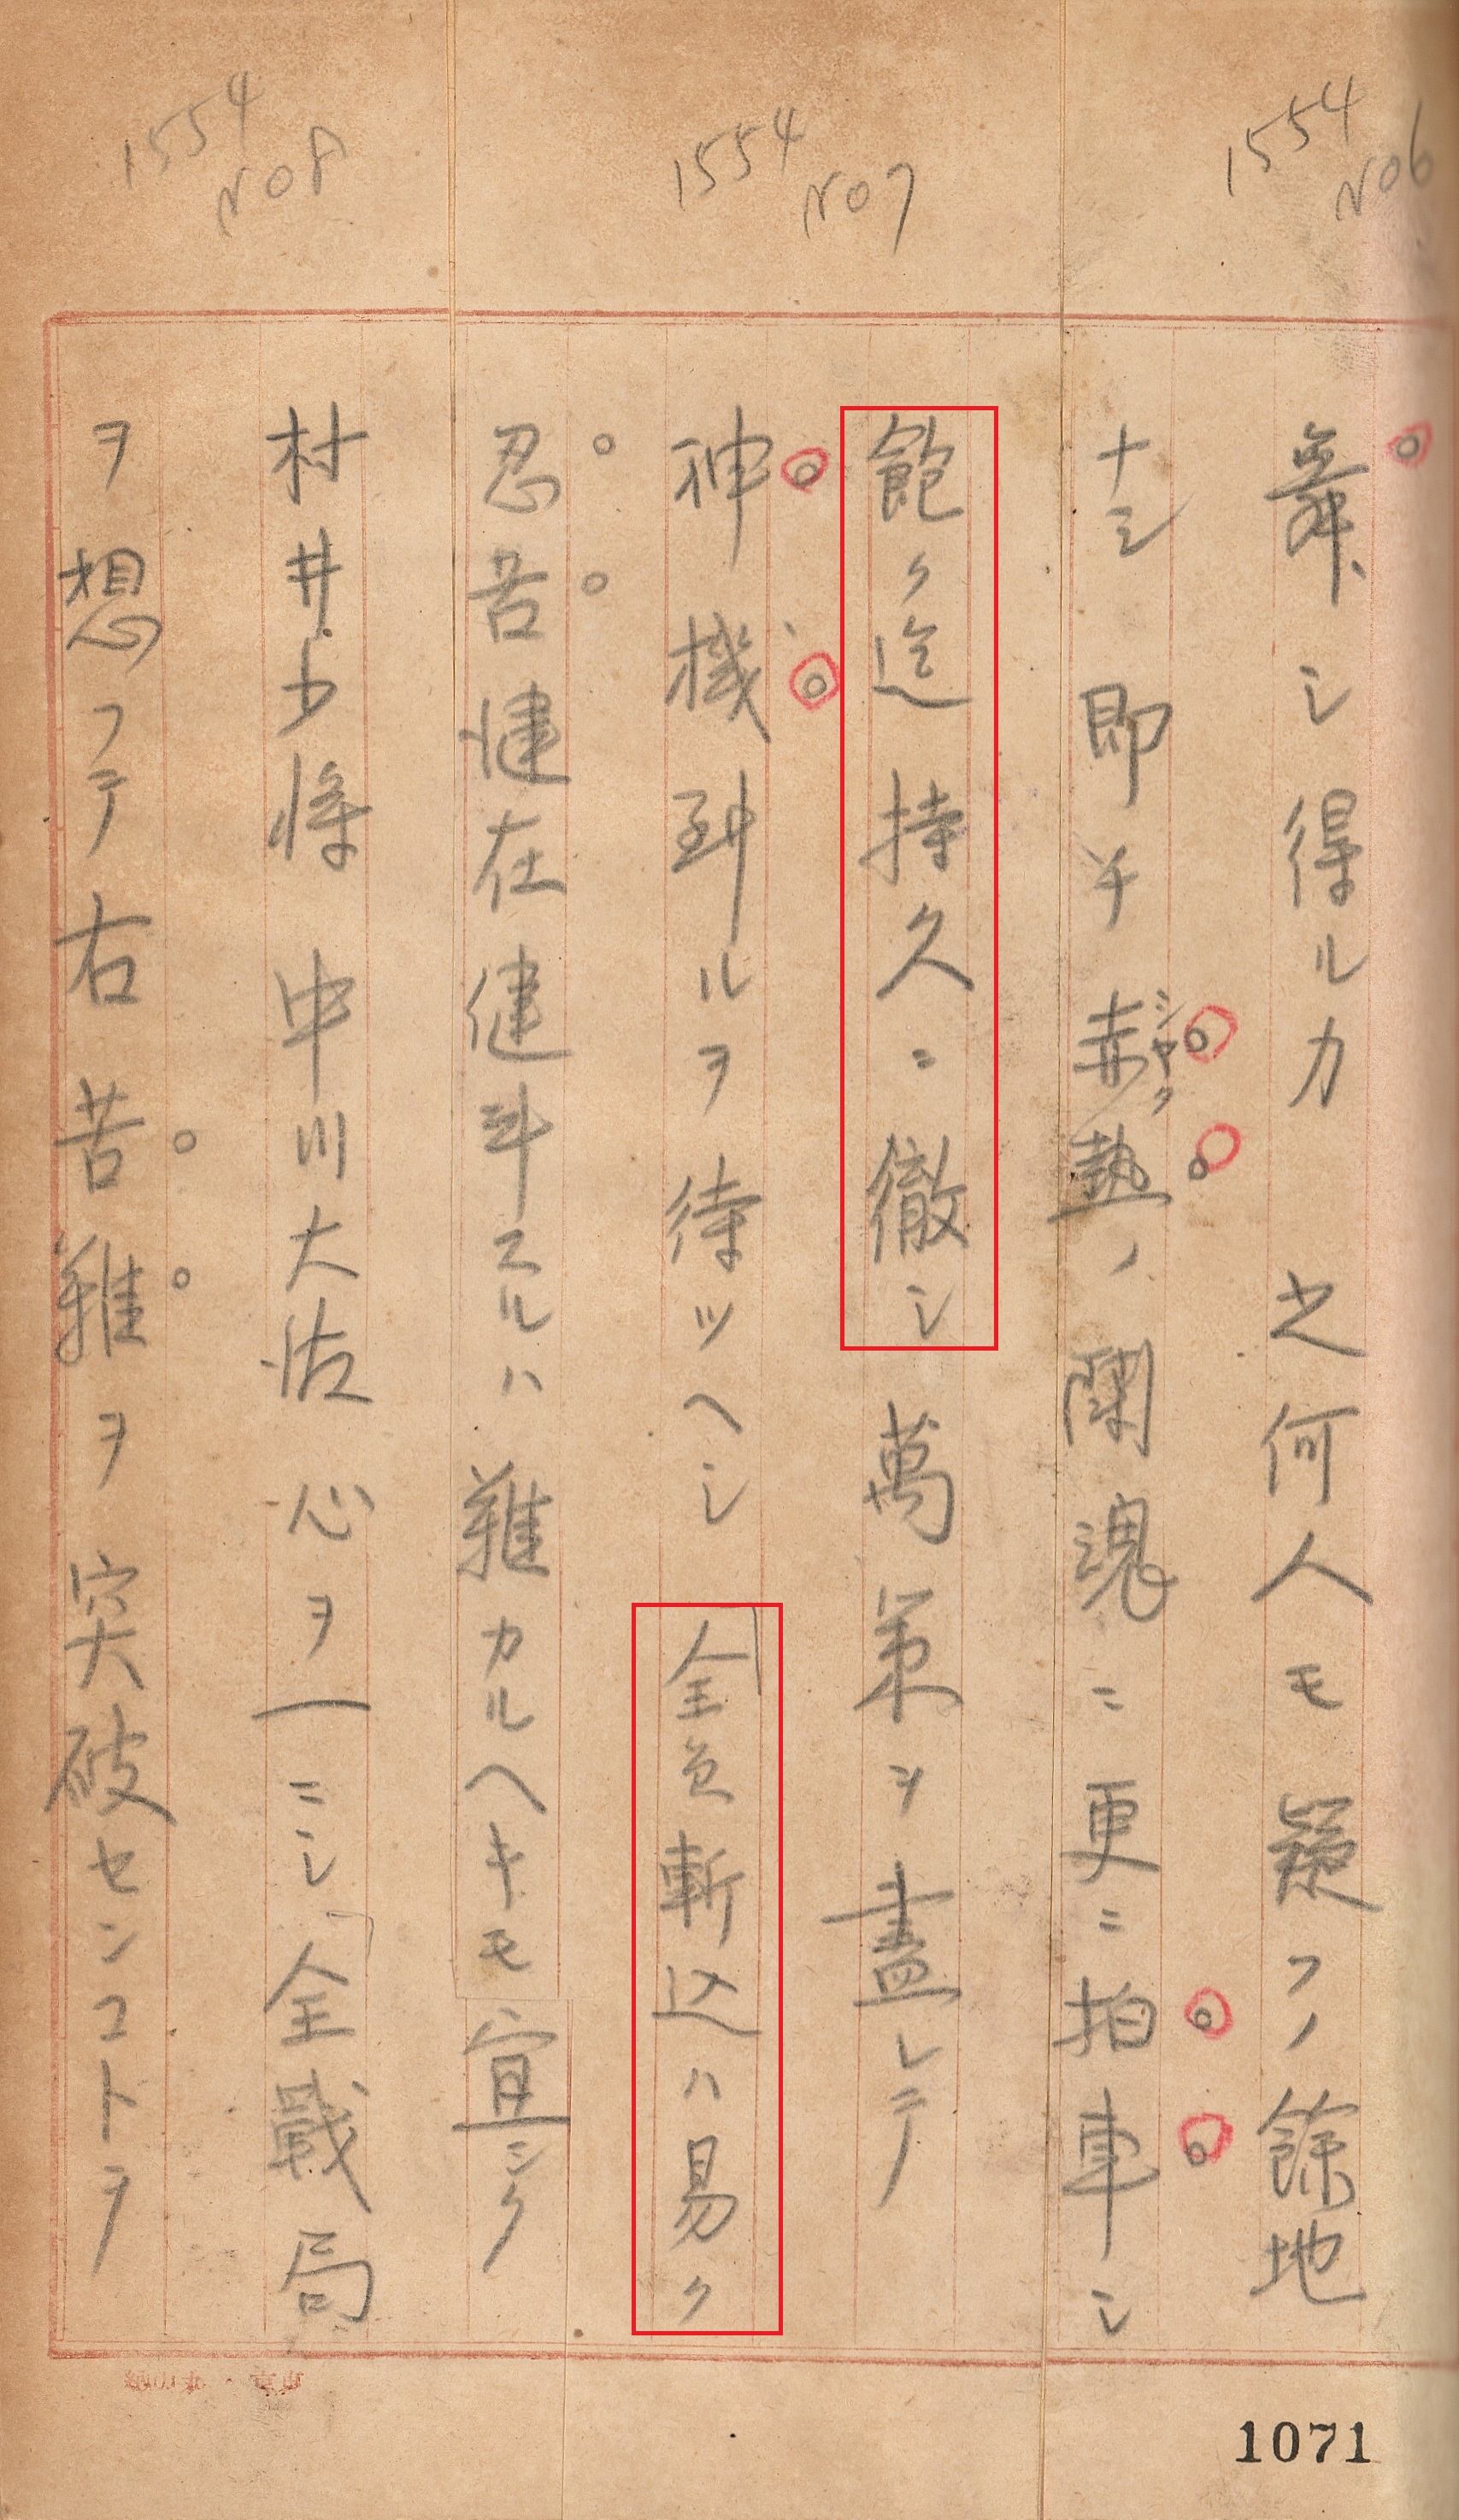 1554
NO6
1554
NO7
1554
NO8
舞シ得ルカ 之何人モ疑フノ餘地
ナシ 即チ赤熱ノ闘魂ニ更ニ拍車シ
シヤク
飽ク迄持久ニ徹シ 萬策ヲ盡シテ
神機到ルヲ待ツヘシ 全員斬込ハ易ク
忍苦健在健斗スルハ難カルヘキモ宜シク
村井少將 中川大佐 心ヲ一ニシ全戰局
ヲ想フテ右苦難ヲ突破センコトヲ
1071